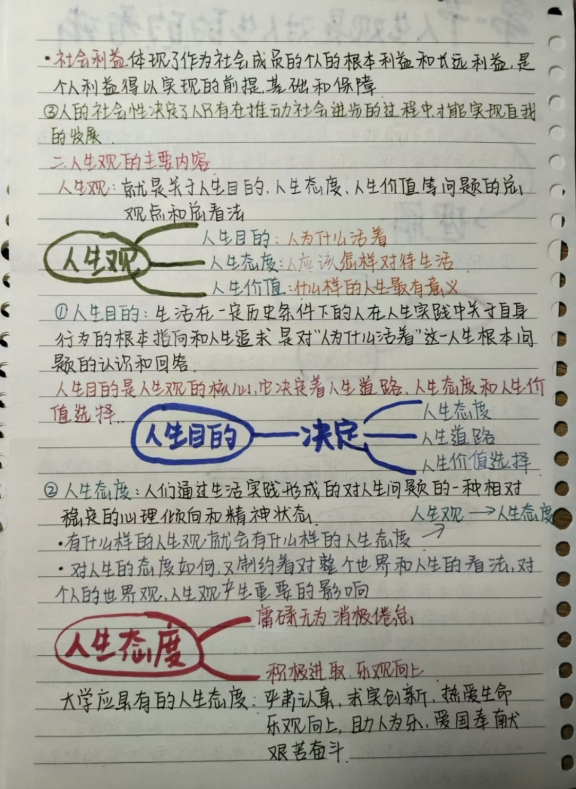 ·社会利益体现了作为社会成员的个人的根本利益和长远利益,是
个人利益得以实现的前提、基础和保障
③人的社会性决定了人只有在推动社会进步的过程中才能实现自我
的发展.
二.人生观的主要内容
人生观:就是关于人生目的、人生态度、人生价值等问题的总
观点和总看法
人生观
人生目的:人为什么活着
人生态度:人应该怎样对待生活
人生价值:什么样的人生最有意义
①人生目的:生活在一定历史条件下的人在人生实践中关于自身
行为的根本指向和人生追求.是对“人为什么活着”这一人生根本问
题的认识和回答.
人生目的是人生观的核心,它决定着人生道路、人生态度和人生价
值选择.
人生目的 — 决定
人生态度
人生道路
人生价值选择
②人生态度:人们通过生活实践形成的对人生问题的一种相对
稳定的心理倾向和精神状态.
人生观→人生态度
·有什么样的人生观,就会有什么样的人生态度
·对人生的态度如何,又制约着对整个世界和人生的看法,对
个人的世界观,人生观产生重要的影响
人生态度
庸碌无为 消极倦怠
积极进取.乐观向上
大学应具有的人生态度:严肃认真,求实创新,热爱生命
乐观向上,助人为乐,爱国奉献
艰苦奋斗.